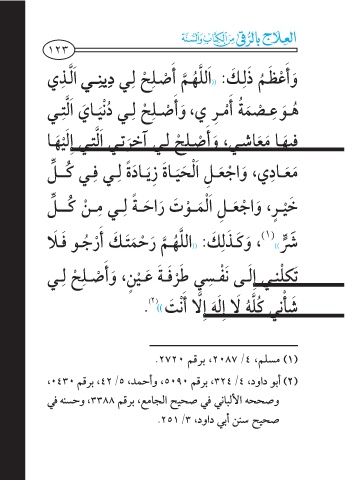 العلاج بالرقى من الكتاب والسنة
١٢٣
وَأَعْظَمُ ذَلِكَ: «اَللَّهُمَّ أَصْلِحْ لِي دِينِي اَلَّذِي
هُوَ عِصْمَةُ أَمْرِي، وَأَصْلِحْ لِي دُنْيَايَ اَلَّتِي
فِيهَا مَعَاشِي، وَأَصْلِحْ لِي آخِرَتِي اَلَّتِي إِلَيْهَا
مَعَادِي، وَاجْعَلِ اَلْحَيَاةَ زِيَادَةً لِي فِي كُلِّ
خَيْرٍ، وَاجْعَلِ اَلْمَوْتَ رَاحَةً لِي مِنْ كُلِّ
شَرٍّ»(١)، وَكَذَلِكَ: «اللَّهُمَّ رَحْمَتَكَ أَرْجُو فَلَا
تَكِلْنِي إِلَى نَفْسِي طَرْفَةَ عَيْنٍ، وَأَصْلِحْ لِي
شَأْنِي كُلَّهُ لَا إِلَهَ إِلَّا أَنْتَ»(٢).
(١) مسلم، ٤/ ٢٠٨٧، برقم ٢٧٢٠.
(٢) أبو داود، ٤/ ٣٢٤، برقم ٥٠٩٠، وأحمد، ٥/ ٤٢، برقم ٠٤٣٠،
وصححه الألباني في صحيح الجامع، برقم ٣٣٨٨، وحسنه في
صحيح سنن أبي داود، ٣/ ٢٥١.